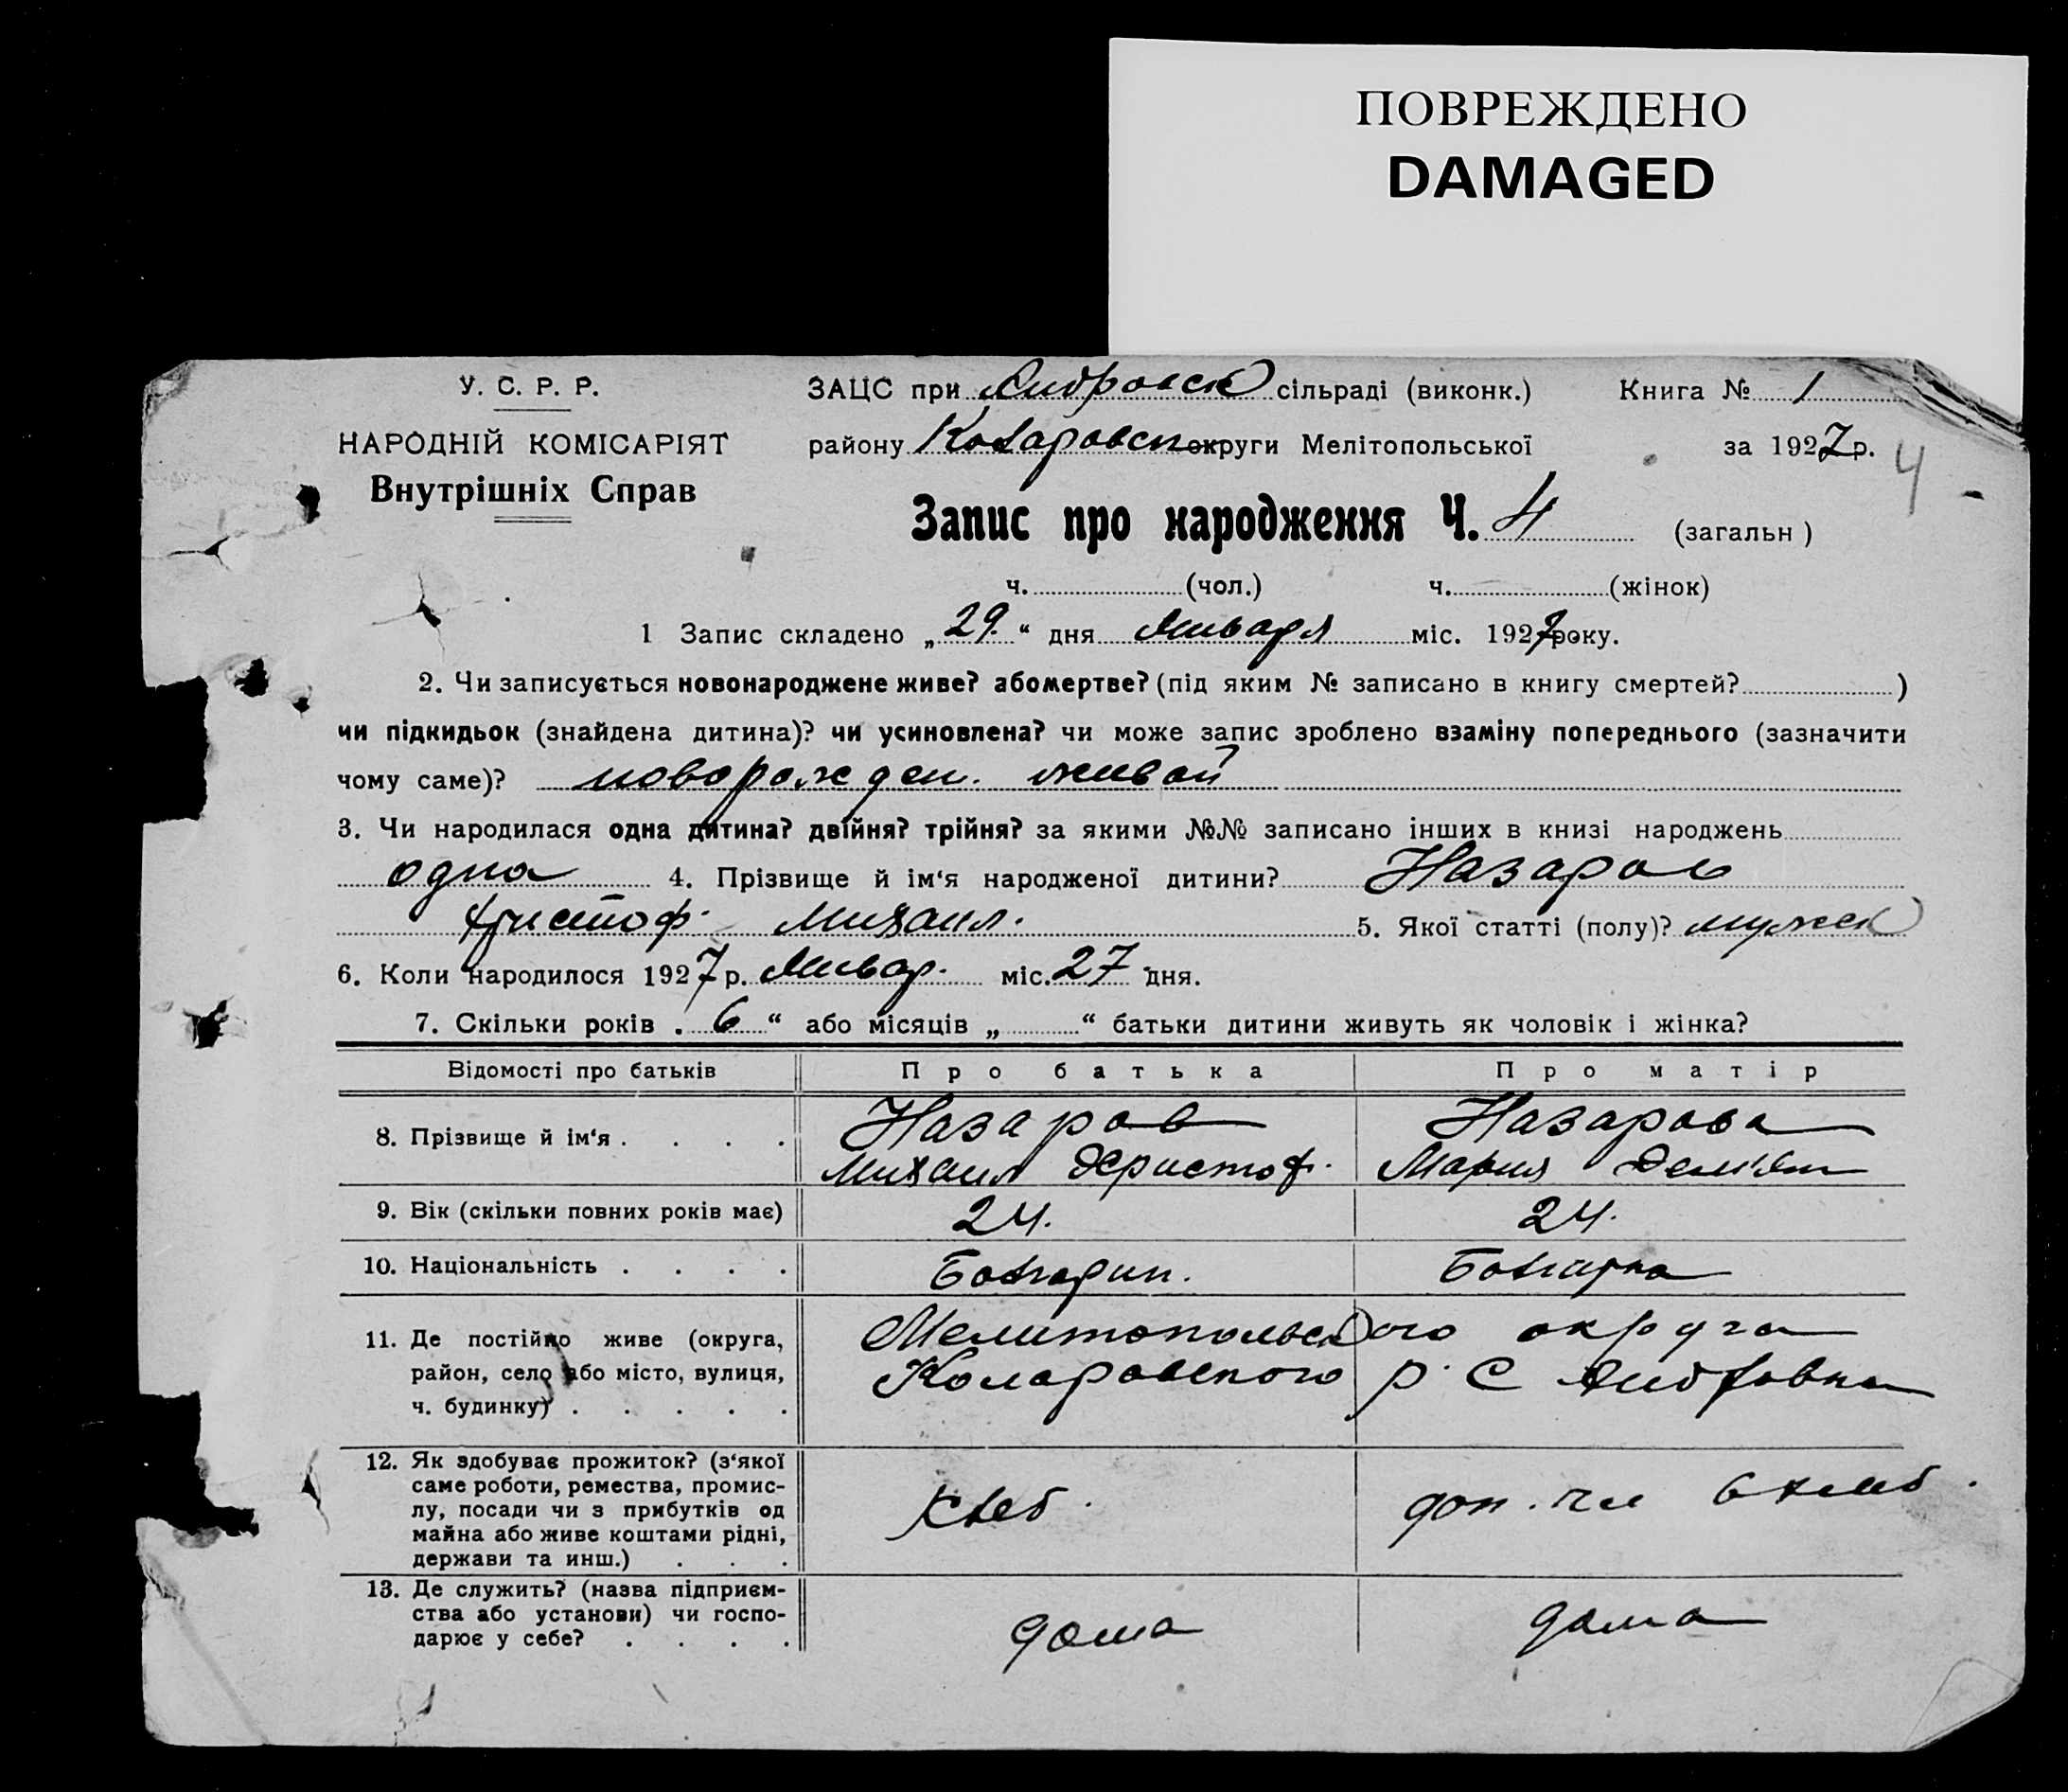 ПОВРЕЖДЕНО
DAMAGED
У. С. Р. Р.
НАРОДНІЙ КОМІСАРІЯТ
Внутрішніх Справ
ЗАЦС при сільраді (виконк.) Книга № 1
району Коларовск округи Мелітопольської за 1927 р.
4
Запис про народження Ч. 4 (загальн )
ч. (чол.) ч. (жінок)
1 Запис складено „ 29. “ дня Января міс. 1927 року.
2. Чи записується новонароджене живе? або мертве? (під яким № записано в книгу смертей? )
чи підкидьок (знайдена дитина)? чи усиновлена? чи може запис зроблено взаміну попереднього (зазначити
чому саме)? новорожден. живой
3. Чи народилася одна дитина? двійня? трійня? за якими №№ записано інших в книзі народжень
одна 4. Прізвище й ім‘я народженої дитини? Назаров
Христоф. Михаил. 5. Якої статті (полу)? мужск
6. Коли народилося 1927 р. Январ. міс. 27 дня.
7. Скільки років . 6 “ або місяців „ “ батьки дитини живуть як чоловік і жінка?
Відомості про батьків Про батька Про матір
8. Прізвище й ім‘я . . . . Назаров Назарова
Михаил Христоф. Мария
9. Вік (скільки повних років має) 24. 24.
10. Національність . . . . Болгарин. Болгарка
11. Де постійно живе (округа, Мелитопольского округа
район, село або місто, вулиця, Коларовского р. С
ч. будинку) . . . . .
12. Як здобуває прожиток? (з‘якої
саме роботи, ремества, промис-
лу, посади чи з прибутків од хлеб. доп. чл
майна або живе коштами рідні,
держави та инш.) . . .
13. Де служить? (назва підприєм-
ства або установи) чи госпо- дома дома
дарює у себе? . . . .